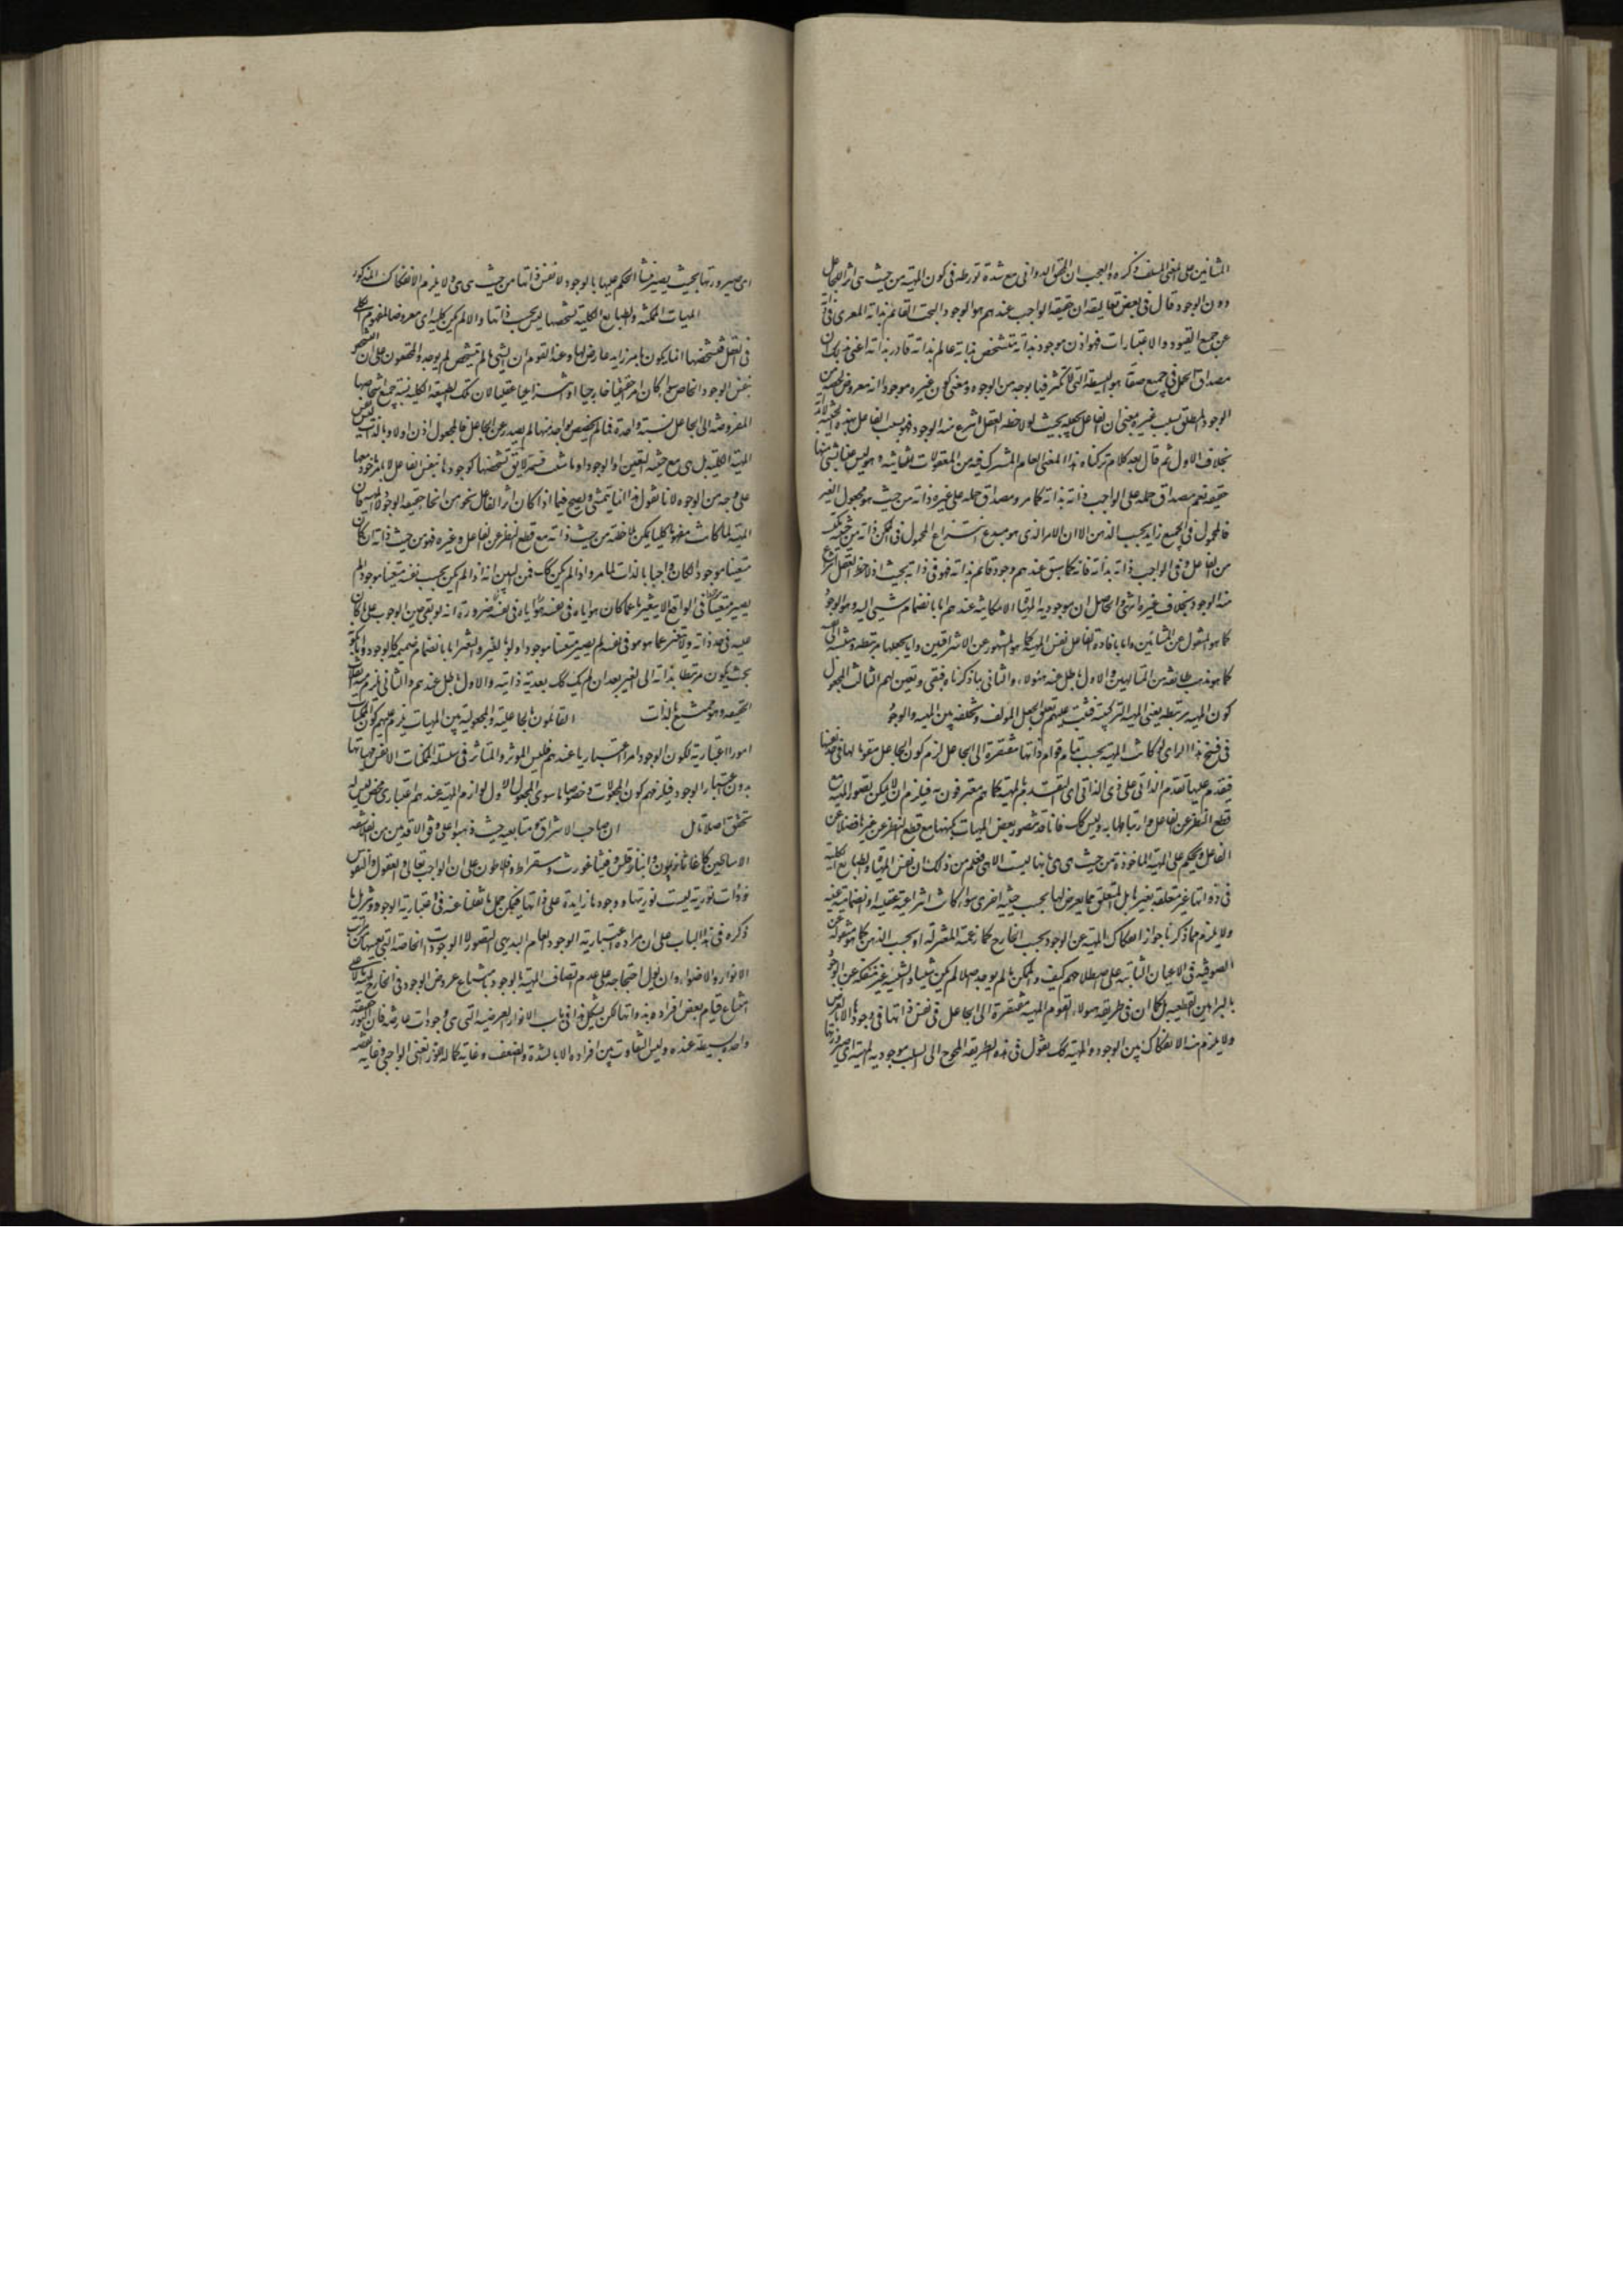 المشائين على المعنى المسلف ذكره والعجب ان المحقق الدواني مع شدة تورطه في كون المهية من حيث هي اثر الجاعل
دون الوجود قال في بعض تعاليقه ان حقيقة الواجب عندهم هو الوجود البحت القائم بذاته المعرى في ذاته
عن جميع القيود والاعتبارات فهو اذن موجود بذاته متشخص بذاته عالم بذاته قادر بذاته اعني بذلك ان
مصداق الحمل في جميع صفاته هويته البسيطة التي لا تكثر فيها بوجه من الوجوه ومعنى كون غيره موجودا انه معروض لحصة من
الوجود المطلق بسبب غيره بمعنى ان الفاعل يجعله بحيث لو لاحظه العقل انتزع منه الوجود فهو بسبب الفاعل بهذه الحيثية لا بذاته
بخلاف الاول ثم قال بعد كلام تركناه هذا المعنى العام المشترك فيه من المعقولات الثانية وهو ليس عينا لشيء منها
حقيقة نعم مصداق حمله على الواجب ذاته بذاته كما مر ومصداق حمله على غيره ذاته من حيث هو مجعول الغير
فالمحمول في الجميع زايد بحسب الذهن الا ان الامر الذي هو مبدء انتزاع المحمول في الممكن ذاته من حيثية مكتسبة
من الفاعل وفي الواجب ذاته بذاته فانه كما سبق عندهم وجود قائم بذاته فهو في ذاته بحيث اذا لاحظه العقل انتزع
منه الوجود بخلاف غيره انتهى والحاصل ان موجودية المهيات الامكانية عندهم اما بانضمام شيء اليه وهو الوجود
كما هو المنقول عن المشائين واما بافادة الفاعل نفس المهية كما هو المشهور عن الاشراقيين واما بجعلها مرتبطة ومنتسبة الى
كما هو مذهب طائفة من المتالهين والاول باطل عند هؤلاء والثاني بما ذكرناه فبقي وتعين لهم الثالث المجعول
كون المهية مرتبطة يعني المهية التركيبية فثبت عليهم تعلق الجعل المؤلف وتخلله بين المهية والوجود
في فسخ هذا الراى لو كانت المهية بحسب قوام ذاتها مفتقرة الى الجاعل لزم كون الجاعل مقوما لها في حد نفسها
فيتقدم عليها تقدم الذاتي على ذي الذاتي اى التقدم بالمهية كما هم معترفون به فيلزم ان لا يمكن تصور المهية مع
قطع النظر عن الفاعل وارتباطها به وليس كك فانا قد نتصور بعض المهيات بكنهها مع قطع النظر عن غيرها فضلا عن
الفاعل ونحكم على المهية الماخوذة من حيث هي هي بانها ليست الا هي فعلم من ذلك ان نفس المهيات والطبايع الكلية
في ذواتها غير متعلقة بغيرها بل المتعلق مما يعرض لها بحسب حيثية اخرى سواء كانت انتزاعية عقلية او انضمامية عينية
ولا يلزم مما ذكرنا جواز انفكاك المهية عن الوجود بحسب الخارج كما زعمته المعتزلة او بحسب الذهن كما هو منقول عن
الصوفية في الاعيان الثابتة على اصطلاحهم كيف والممكن ما لم يوجد اصلا لم يكن شيئا والشيئية غير منفكة عن الوجود
بالبراهين القطعية بل كما ان في طريقة هؤلاء القوم المهية مفتقرة الى الجاعل في نفس ذاتها وفي وجودها الا بالعرض
ولا يلزم منه الانفكاك بين الوجود والمهية كك نقول في هذه الطريقة المحوج الى السبب موجودية المهية اى صيرورتها
اى صيرورتها بحيث يصير منشا الحكم عليها بالوجود لا نفس ذاتها من حيث هي هي ولا يلزم الانفكاك المذكور
المهيات الممكنة والطبايع الكلية تشخصها ليس بحسب ذاتها والا لم يكن كلية اى معروضا لمفهوم الكلي
في العقل فتشخصها انما يكون بامر زايد عارض لها وعند القوم ان الشيء ما لم يتشخص لم يوجد والمحققون على ان التشخص
بنفس الوجود الخاص سواء كان امرا حقيقيا خارجيا او انتزاعيا عقليا لان تلك الطبيعة الكلية نسبة جميع اشخاصها
المفروضة الى الجاعل نسبة واحدة فما لم يتخصص بواحد منها لم يصدر عن الجاعل فالمجعول اذن اولا وبالذات ليس نفس
المهية الكلية بل هي مع حيثية التعين او الوجود او ما شئت فسمه لا يق تشخصها كوجودها بنفس الفاعل لا بامر ماخوذ معها
على وجه من الوجوه لانا نقول هذا انما يتمشى ويصح فيما اذا كان اثر الفاعل نحو من انحاء حقيقة الوجود لا المهية فان
المهية لما كانت مفهوما كليا يمكن ملاحظته من حيث ذاته مع قطع النظر عن الفاعل وغيره فهو من حيث ذاته ان كان
متعينا موجودا لكان واجبا بالذات لما مر واذا لم يكن كك فمن البين انه اذا لم يكن بحسب نفسه متعينا موجودا لم
يصير متعينا في الواقع الا بتغيرها عما كان هو اياه في نفسه ضرورة انه لو بقي حين الوجوب على ما كان
عليه في حد ذاته ولا تغير عما هو هو في نفسه لم يصير متعينا موجودا ولو بالغير والتغير اما بانضمام ضميمة كالوجود واما بكونه
بحيث يكون مرتبطا بذاته الى الغير بعد ان لم يك كك بعدية ذاتية والاول باطل عندهم والثاني يلزم منه انقلاب
الحقيقة وهو ممتنع بالذات القائلون بالجاعلية والمجعولية بين المهيات يلزم عليهم كون الممكنات
امورا اعتبارية لكون الوجود امرا اعتباريا عندهم فليس المؤثر والمتاثر في سلسلة الممكنات الا نفس مهياتها
بدون اعتبار الوجود فيلزمهم كون المجعولات وخصوصا ما سوى المجعول الاول لوازم المهية عندهم اعتباري محض ليس له
تحقق اصلا تامل ان صاحب الاشراق ومتابعيه حيث ذهبوا على وفق الاقدمين من الفلاسفة
الاساطين كاغاثاذيمون وانباذقلس وفيثاغورث وسقراط وفلاطون على ان الواجب تعالى والعقول والنفوس
ذوات نورية ليست نوريتها ووجودها زايدة على ذاتها فيمكن حمل ما نقلنا عنه في اعتبارية الوجود وتنزيل ما
ذكره في هذا الباب على ان مراده اعتبارية الوجود العام البديهي التصور لا الوجودات الخاصة التي بعينها من مراتب
الانوار والاضواء وان يؤل احتجاجه على عدم اتصاف المهية بالوجود بامتناع عروض الوجود في الخارج لمهية ما لا على
امتناع قيام بعض افراده بذواتها لكن يشكل هذا في باب الانوار العرضية التي هي وجودات عارضة فان حقيقة النور
واحدة بسيطة عنده وليس التفاوت بين افراده الا بالشدة والضعف وغاية كماله النور الغني الواجبي وغاية نقصه